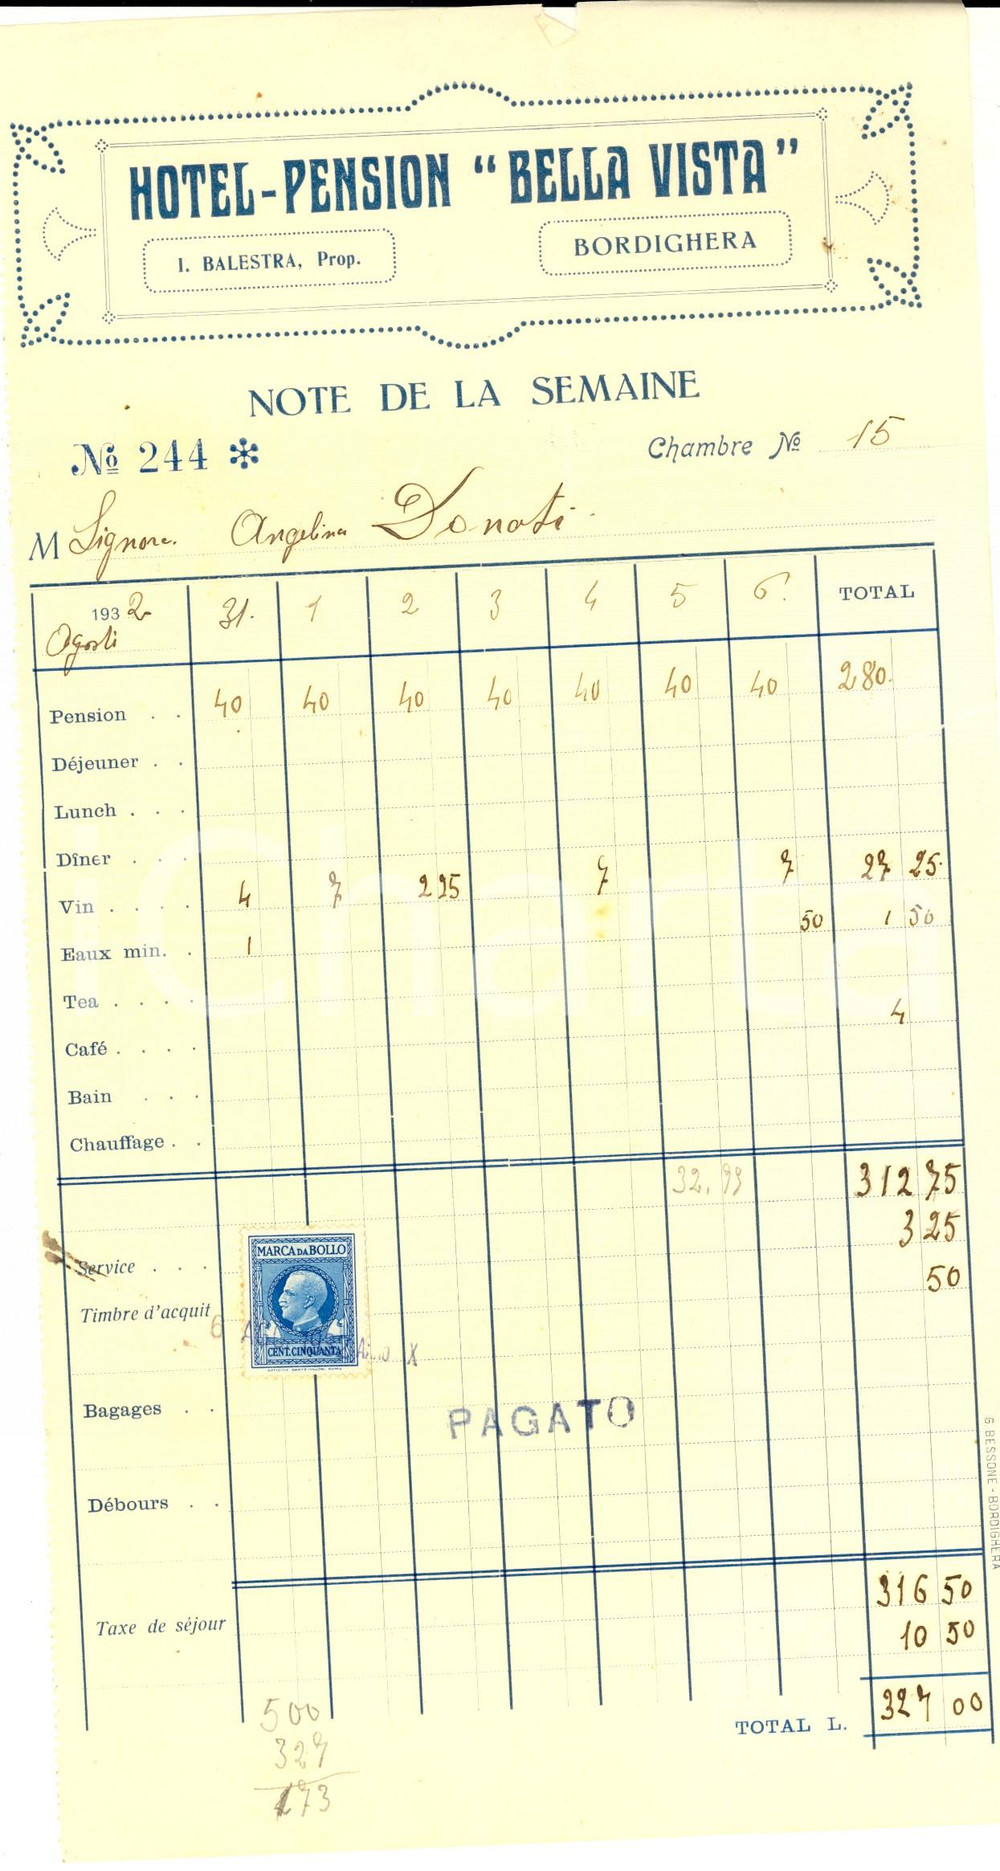 HOTEL-PENSION "BELLA VISTA"
I. BALESTRA, Prop.
BORDIGHERA
NOTE DE LA SEMAINE
No 244 Chambre No 15
M Signora Angelina Donati
1932 Agosti 31. 1 2 3 4 5 6. TOTAL
Pension . . 40 40 40 40 40 40 40 280.
Déjeuner . .
Lunch . . .
Dîner . . .
Vin . . . . 4 7 2 25 7 7 27 25
Eaux min. . 1 50 1 50
Tea . . . . 4
Café . . . .
Bain . . .
Chauffage . .
32,99 312 75
Service . . . 3 25
Timbre d'acquit 50
MARCA DA BOLLO
CENT. CINQUANTA
6 A X
Bagages . .
PAGATO
Débours . .
316 50
Taxe de séjour 10 50
TOTAL L. 327 00
500
327
173
G. BESSONE - BORDIGHERA
Charta